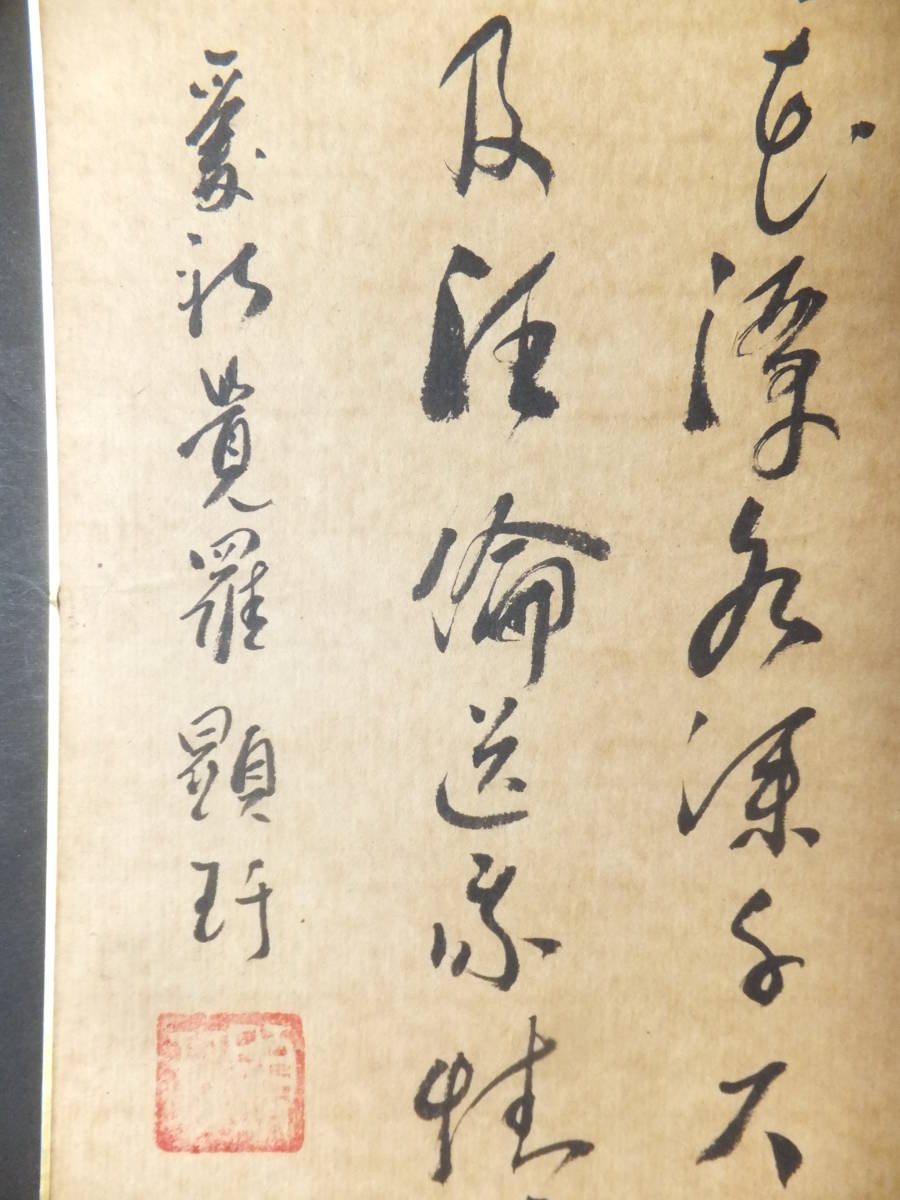 花潭水深千尺
及汪倫送我情
愛新覺羅顯玗